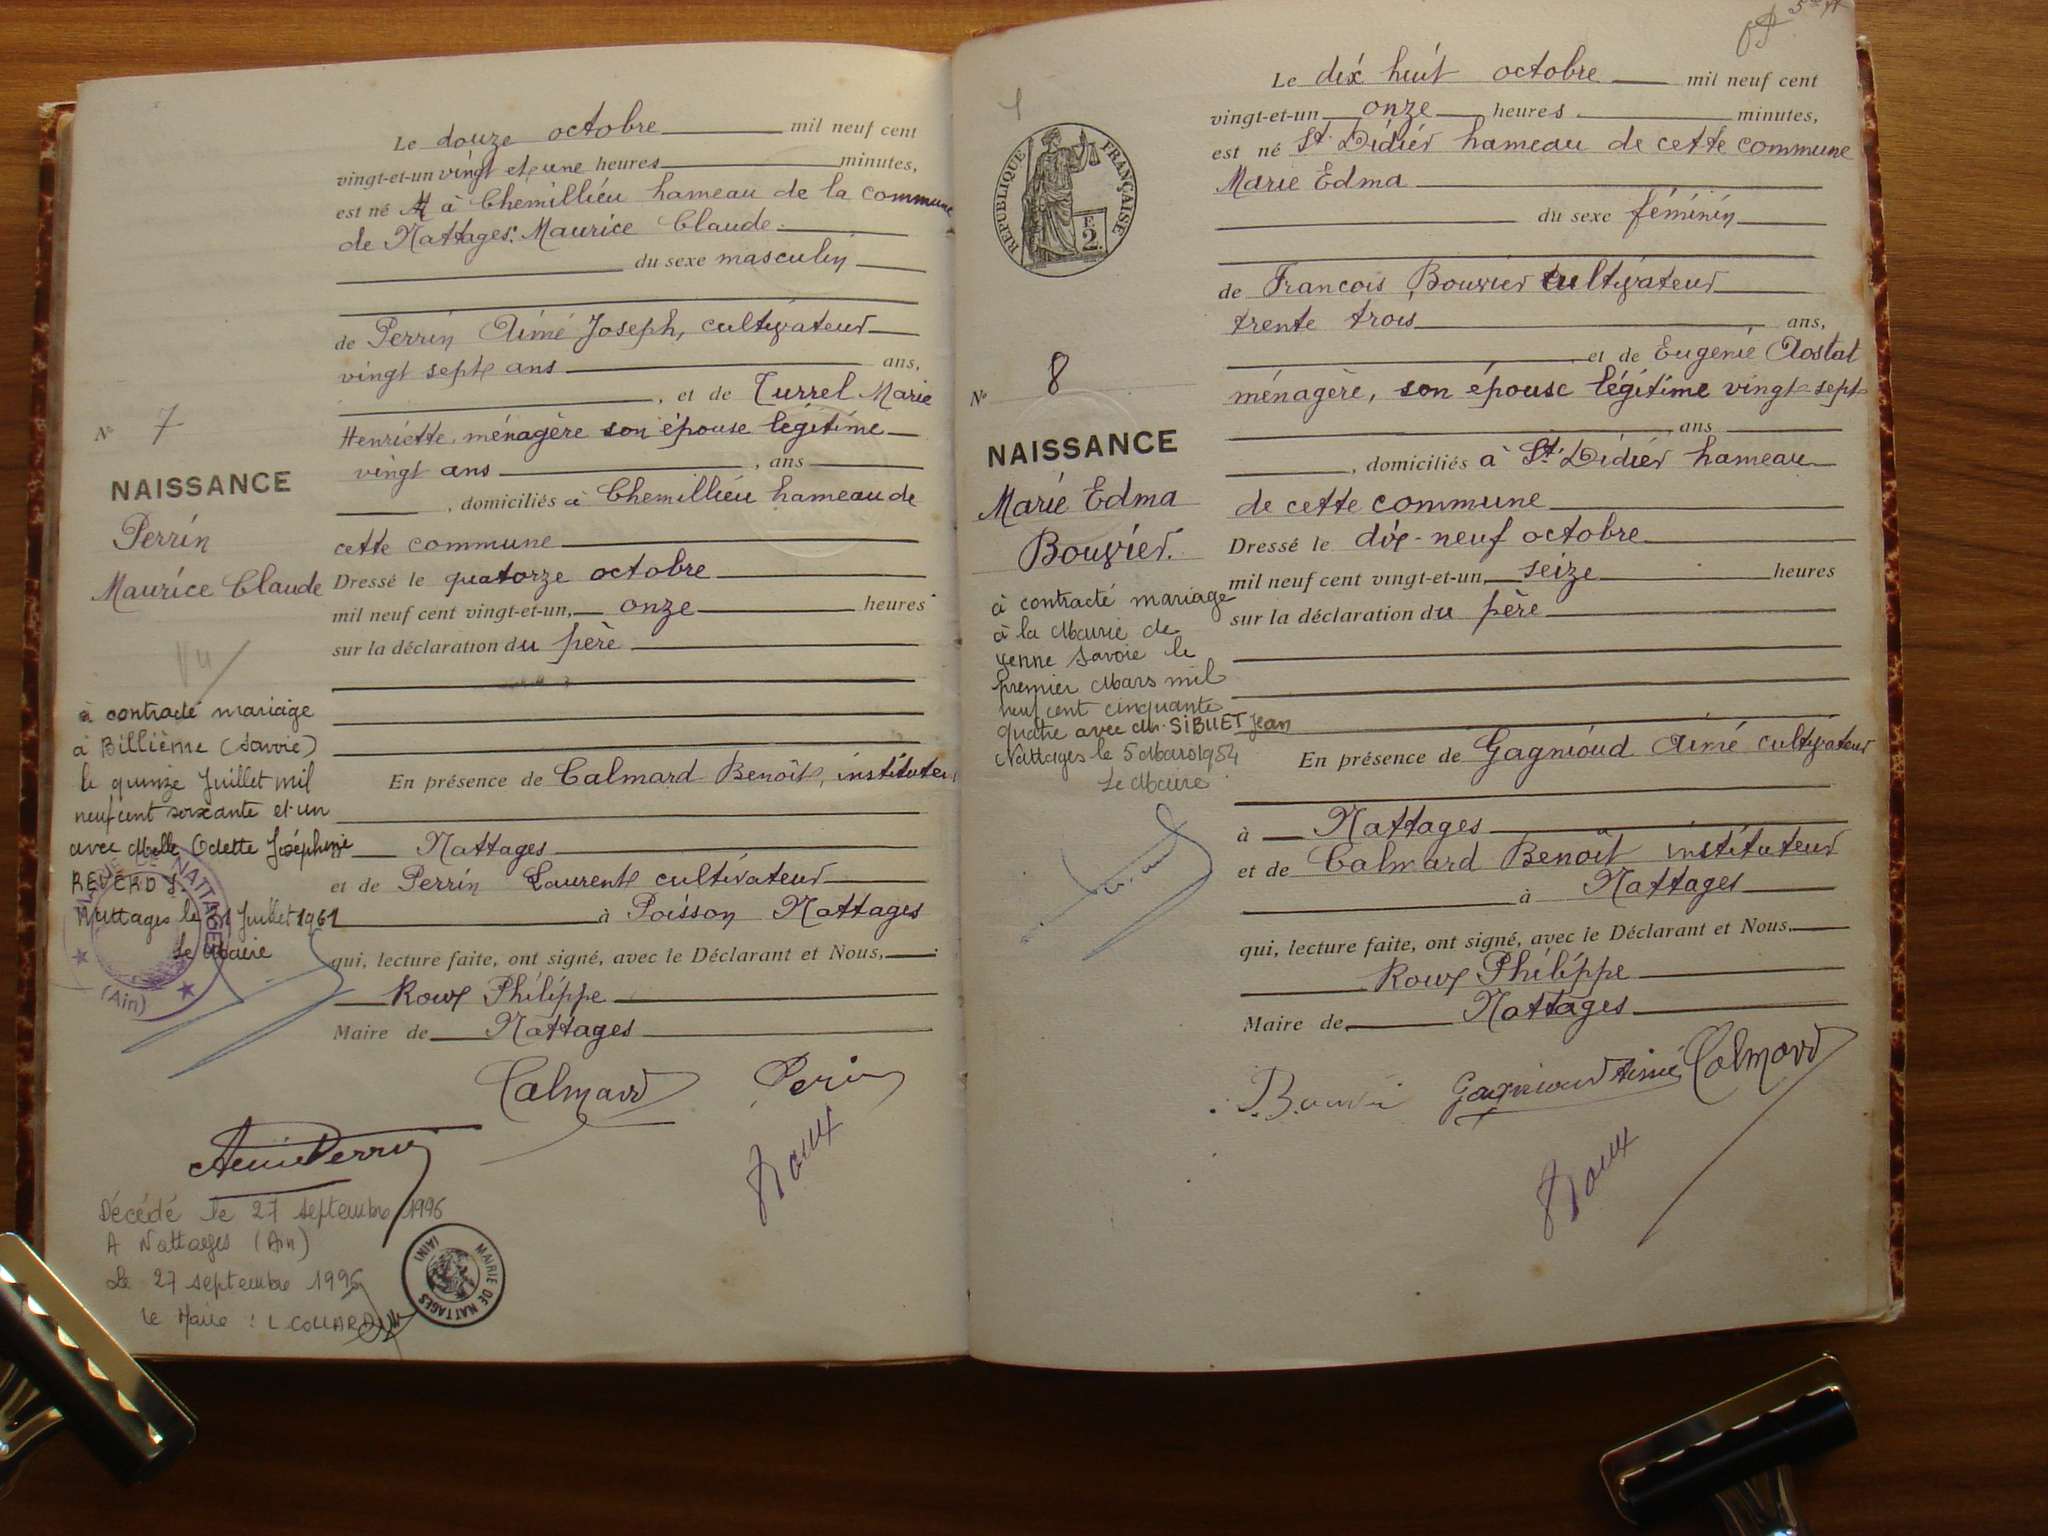 Le douze octobre mil neuf cent
vingt-et-un vingt et une heures minutes,
est né à Chemillieu hameau de la commune
de Nattages: Maurice Claude
du sexe masculin
de Perrin Aimé Joseph, cultivateur
vingt sept ans ans,
, et de Turrel Marie
Henriette ménagère son épouse légitime
vingt ans , ans
, domiciliés à Chemillieu hameau de
cette commune
Dressé le quatorze octobre
mil neuf cent vingt-et-un, onze heures
sur la déclaration du père
En présence de Calmard Benoît, instituteur
Nattages
et de Perrin Laurent cultivateur
à Poisson Nattages
qui, lecture faite, ont signé, avec le Déclarant et Nous,
Roux Philippe
Maire de Nattages
Calmard Perrin
Aimé Perrin
Roux
N° 7
NAISSANCE
Perrin
Maurice Claude
Vu
à contracté mariage
à Billième (Savoie)
le quinze Juillet mil
neuf cent soixante et un
avec Melle Odette Joséphine
REVERDY.
Nattages le Juillet 1961
Le Maire
NATTAGES
(Ain)
Décédé le 27 septembre 1996
A Nattages (Ain)
Le 27 septembre 1996
Le Maire : L COLLARD
MAIRIE DE NATTAGES
(AIN)
Le dix huit octobre mil neuf cent
vingt-et-un onze heures minutes,
est né St Didier hameau de cette commune
Marie Edma
du sexe féminin
de François Bouvier cultivateur
trente trois ans,
et de Eugénie Rostal
ménagère, son épouse légitime vingt-sept
, ans
, domiciliés à St Didier hameau
de cette commune
Dressé le dix-neuf octobre
mil neuf cent vingt-et-un, seize heures
sur la déclaration du père
En présence de Gagnioud Aimé cultivateur
à Nattages
et de Calmard Benoît instituteur
à Nattages
qui, lecture faite, ont signé, avec le Déclarant et Nous,
Roux Philippe
Maire de Nattages
Bouvier Gagnioud Aimé Calmard
Roux
REPUBLIQUE FRANÇAISE
F.
2.
N° 8
NAISSANCE
Marie Edma
Bouvier.
à contracté mariage
à la Mairie de
Yenne Savoie le
premier Mars mil
neuf cent cinquante
quatre avec Mr. SIBUET Jean
Nattages le 5 Mars 1954
Le Maire